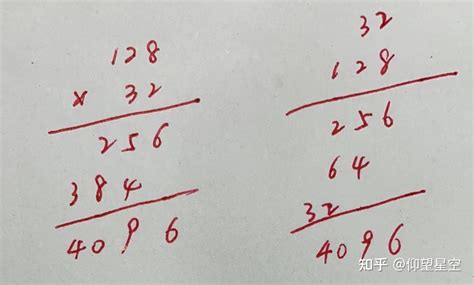 128
× 32
256
384
4096
32
128
256
64
32
4096
知乎 @仰望星空